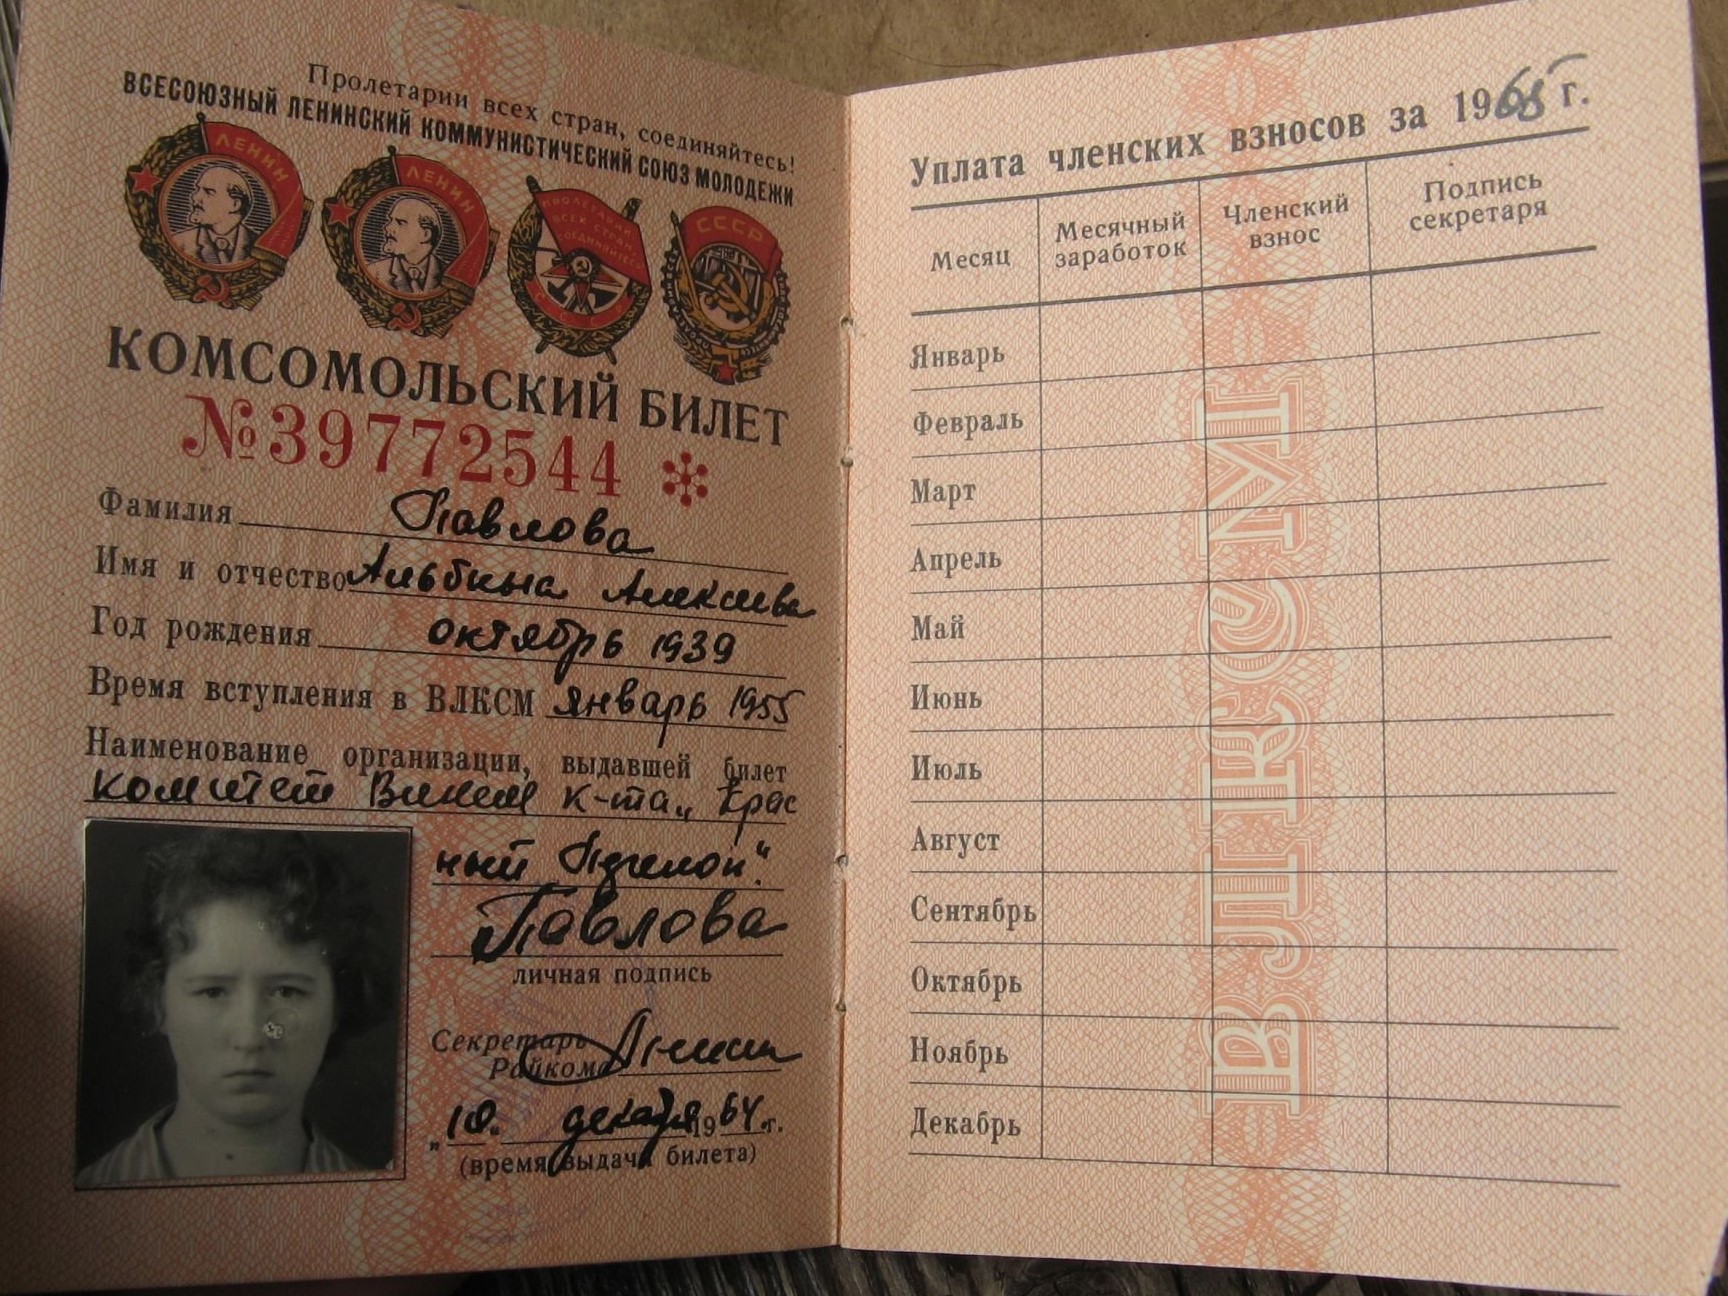 Пролетарии всех стран, соединяйтесь!
ВСЕСОЮЗНЫЙ ЛЕНИНСКИЙ КОММУНИСТИЧЕСКИЙ СОЮЗ МОЛОДЕЖИ
ЛЕНИН ЛЕНИН ПРОЛЕТАРИИ ВСЕХ СТРАН, СОЕДИНЯЙТЕСЬ! СССР СССР
КОМСОМОЛЬСКИЙ БИЛЕТ
№39772544
Фамилия Павлова
Имя и отчество Альбина Алексеева
Год рождения октябрь 1939
Время вступления в ВЛКСМ январь 1955
Наименование организации, выдавшей билет
комитет к-та „Крас
ный
Павлова
личная подпись
Секретарь
Райкома
„10“ декабря 1964 г.
(время выдачи билета)
Уплата членских взносов за 1965 г.
Месяц Месячный заработок Членский взнос Подпись секретаря
Январь
Февраль
Март
Апрель
Май
Июнь
Июль
Август
Сентябрь
Октябрь
Ноябрь
Декабрь
ВЛКСМ